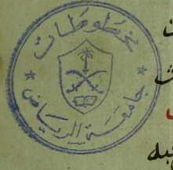 مخطوطات
جامعة الرياض
به